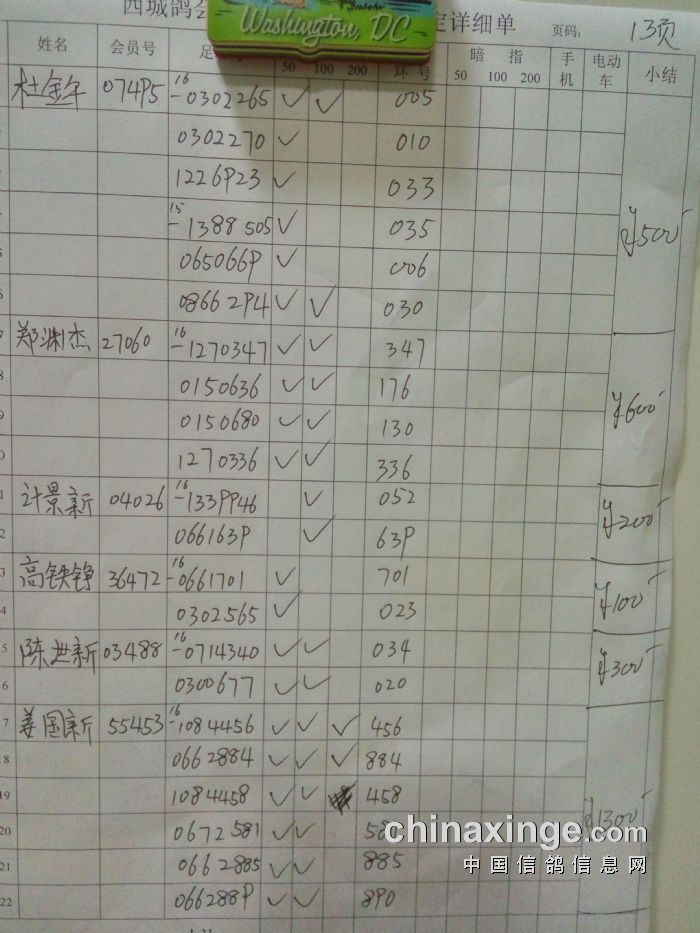 西城鸽会
Washington, DC
定详细单 页码: 13页
姓名 会员号 足 50 100 200 环号 暗指 50 100 200 手机 电动车 小结
杜金年 074P5 16-0302265 ✓ ✓ 005
0302270 ✓ 010
1226P23 ✓ 033
15-1388505 ✓ 035 ¥500
065066P ✓ 006
08662P4 ✓ ✓ 030
郑渊杰 27060 16-1270347 ✓ ✓ 347
0150636 ✓ ✓ 176
0150680 ✓ ✓ 130 ¥600
1270336 ✓ ✓ 336
计景新 04026 16-133PP46 ✓ 052
066163P ✓ 63P ¥200
高铁铮 36472 16-0661701 ✓ 701
0302565 ✓ 023 ¥100
陈世新 03488 16-0714340 ✓ ✓ 034
0300677 ✓ ✓ 020 ¥300
姜国新 55453 16-1084456 ✓ ✓ ✓ 456
18 0662884 ✓ ✓ ✓ 884
19 1084458 ✓ ✓ 458
20 0672581 ✓ ✓ 58 ¥1300
chinaxinge.com
21 0662885 ✓ ✓ 885
中国信鸽信息网
22 066288P ✓ ✓ 8P0